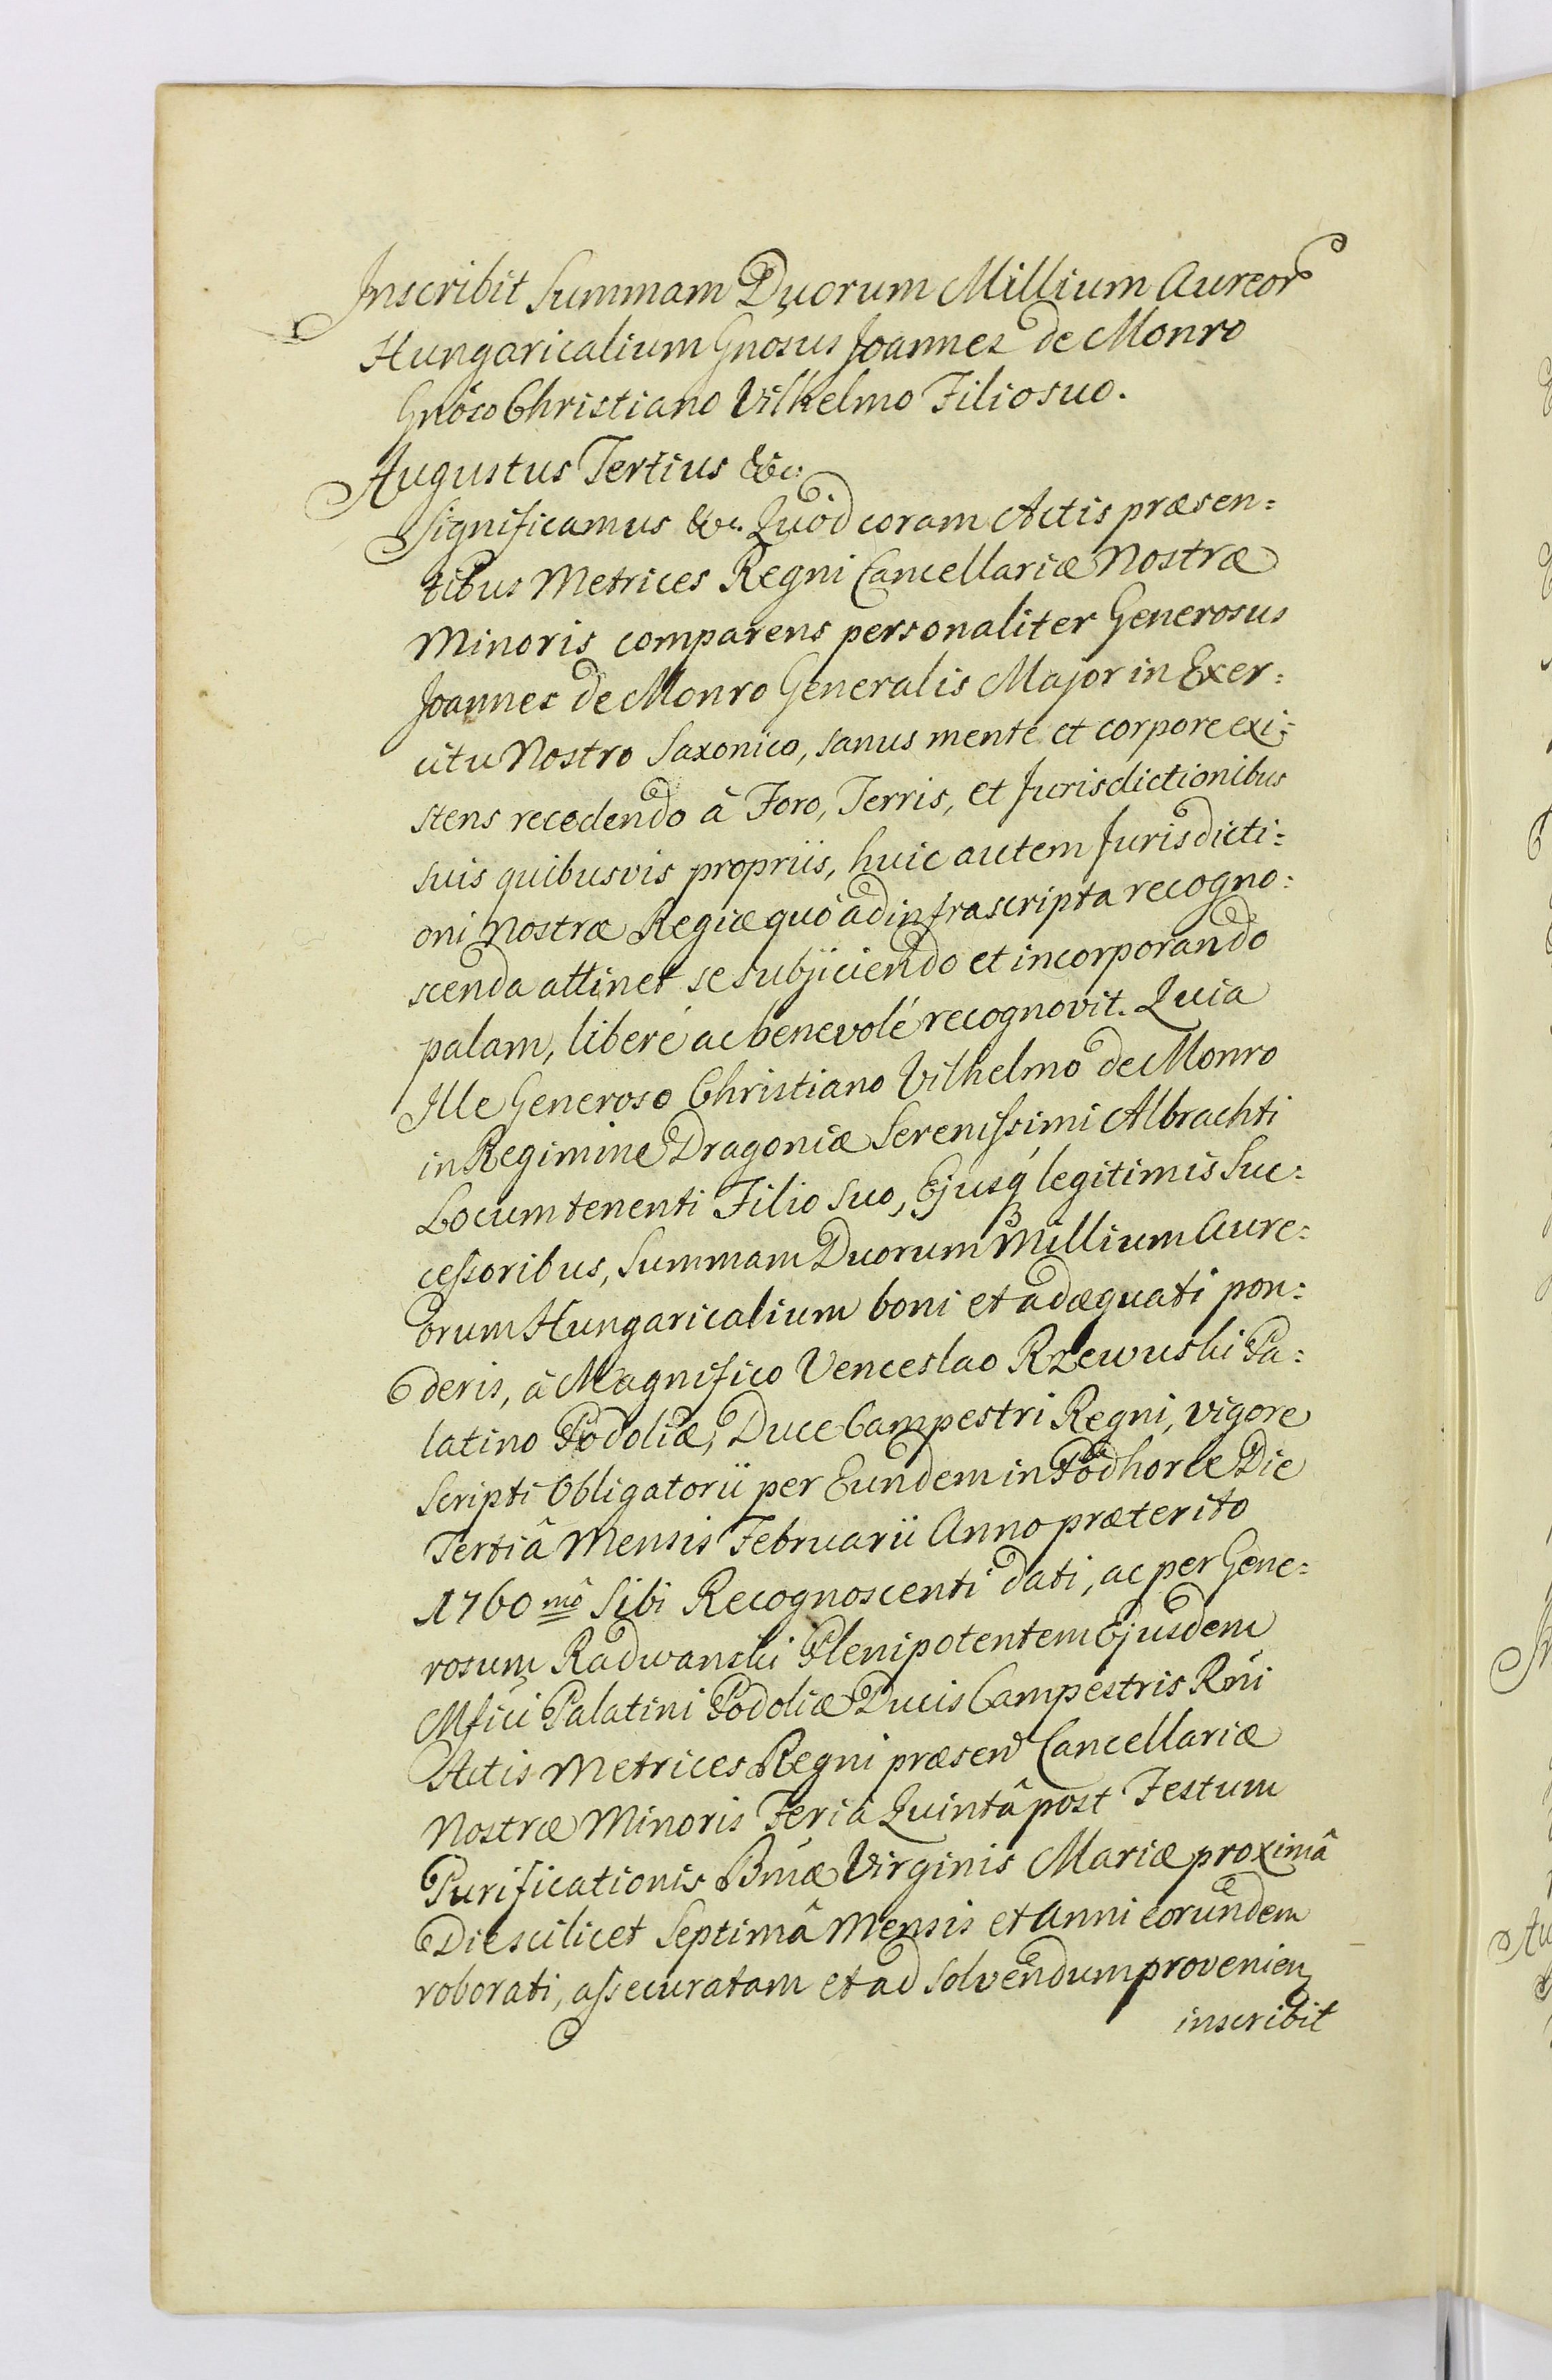 Inscribit Summam Duorum Millium Aureor
Hungaricalium Gnosus Joannes de Monro
Gnoso Christiano Vilhelmo Filio suo.
Augustus Tertius &c.
Significamus &c. Quòd coram Actis præsen=
tibus Metrices Regni Cancellariæ Nostræ
Minoris comparens personaliter Generosus
Joannes de Monro Generalis Major in Exer=
citu Nostro Saxonico, sanus mente et corpore exi=
stens recedendo à Foro, Terris, et Jurisdictionibus
suis quibusvis propriis, huic autem Jurisdicti=
oni Nostræ Regiæ quò ad infrascripta recogno=
scenda attinet se subjiciendo et incorporando
palam, liberé ac benevolé recognovit. Quia
Ille Generoso Christiano Vilhelmo de Monro
in Regimine Dragoniæ Serenissimi Albrachti
Locumtenenti Filio suo, Ejusq́ legitimis Suc=
cessoribus, Summam Duorum Millium Aure=
orum Hungaricalium boni et adæquati pon=
deris, à Magnifico Venceslao Rzewuski Pa=
latino Podoliæ, Duce Campestri Regni, vigore
Scripti Obligatorii per Eundem in Podhorce Die
Tertiâ Mensis Februarii Anno præterito
1760mô Sibi Recognoscenti dati, ac per Gene=
rosum Radwanski Plenipotentem Ejusdem
Mfici Palatini Podoliæ Ducis Campestris Rńi
Actis Metrices Regni præsen Cancellariæ
Nostræ Minoris Feria Quintâ post Festum
Purificationis Bmæ Virginis Mariæ proximâ
Die scilicet Septimâ Mensis et Anni eorundem
roborati, assecuratam et ad solvendum provenien
inscribit